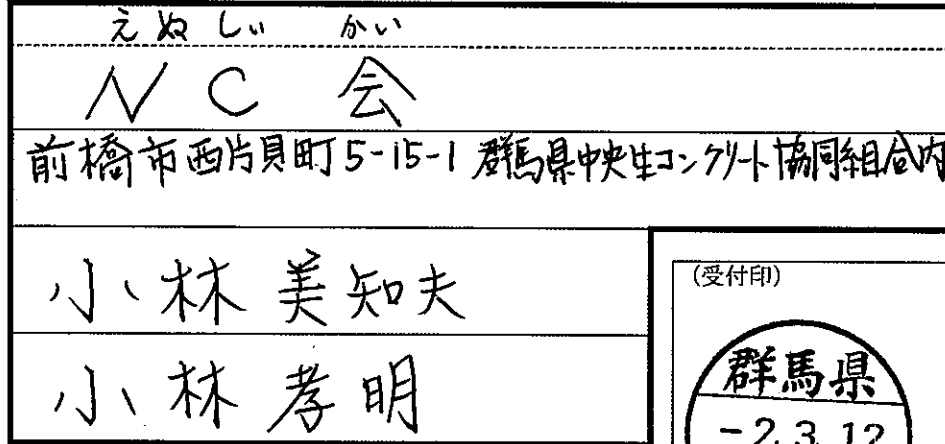 えぬしぃ かい
NC会
前橋市西片貝町5-15-1 群馬県中央生コンクリート協同組合内
小林美知夫
(受付印)
小林孝明
群馬県
-2.3.12